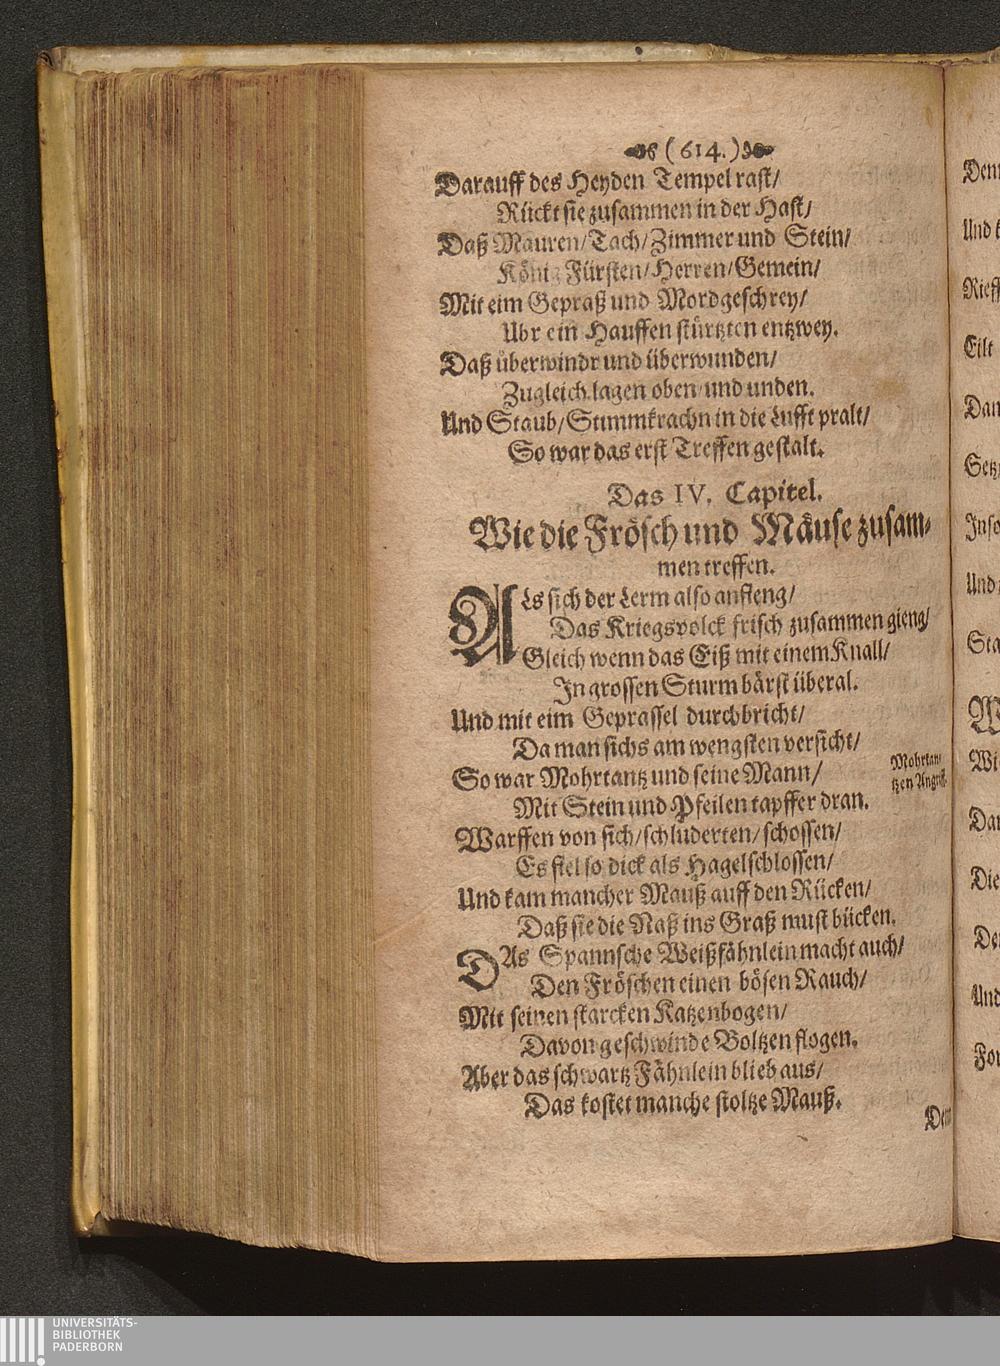 (614.)
Darauff des Heyden Tempel rast/
Rückt sie zusammen in der Hast/
Daß Mauren/Tach/Zimmer und Stein/
König Fürsten/Herren/Gemein/
Mit eim Gepraß und Mordgeschrey/
Ubr ein Hauffen stürtzten entzwey.
Daß überwindr und überwunden/
Zugleich lagen oben und unden.
Und Staub/Stimmkrachn in die Lufft pralt/
So war das erst Treffen gestalt.
Das IV. Capitel.
Wie die Frösch und Mäuse zusam-
men treffen.
ALs sich der Lerm also anfieng/
Das Kriegsvolck frisch zusammen gieng/
Gleich wenn das Eiß mit einem Knall/
In grossen Sturm bärst überal.
Und mit eim Geprassel durchbricht/
Da man sichs am wengsten versicht/
So war Mohrtantz und seine Mann/
Mohrtan-
tzen Angrif.
Mit Stein und Pfeilen tapffer dran.
Warffen von sich/schluderten/schossen/
Es fiel so dick als Hagelschlossen/
Und kam mancher Mauß auff den Rücken/
Daß sie die Naß ins Graß must bücken.
DAs Spannsche Weißfähnlein macht auch/
Den Fröschen einen bösen Rauch/
Mit seinen starcken Katzenbogen/
Davon geschwinde Boltzen flogen.
Aber das schwartz Fähnlein blieb aus/
Das kostet manche stoltze Mauß.
Denn
Und
Rieff
Eilt
Dan
Setz
Und
Sta
Die
Und
UNIVERSITÄTS-
BIBLIOTHEK
PADERBORN